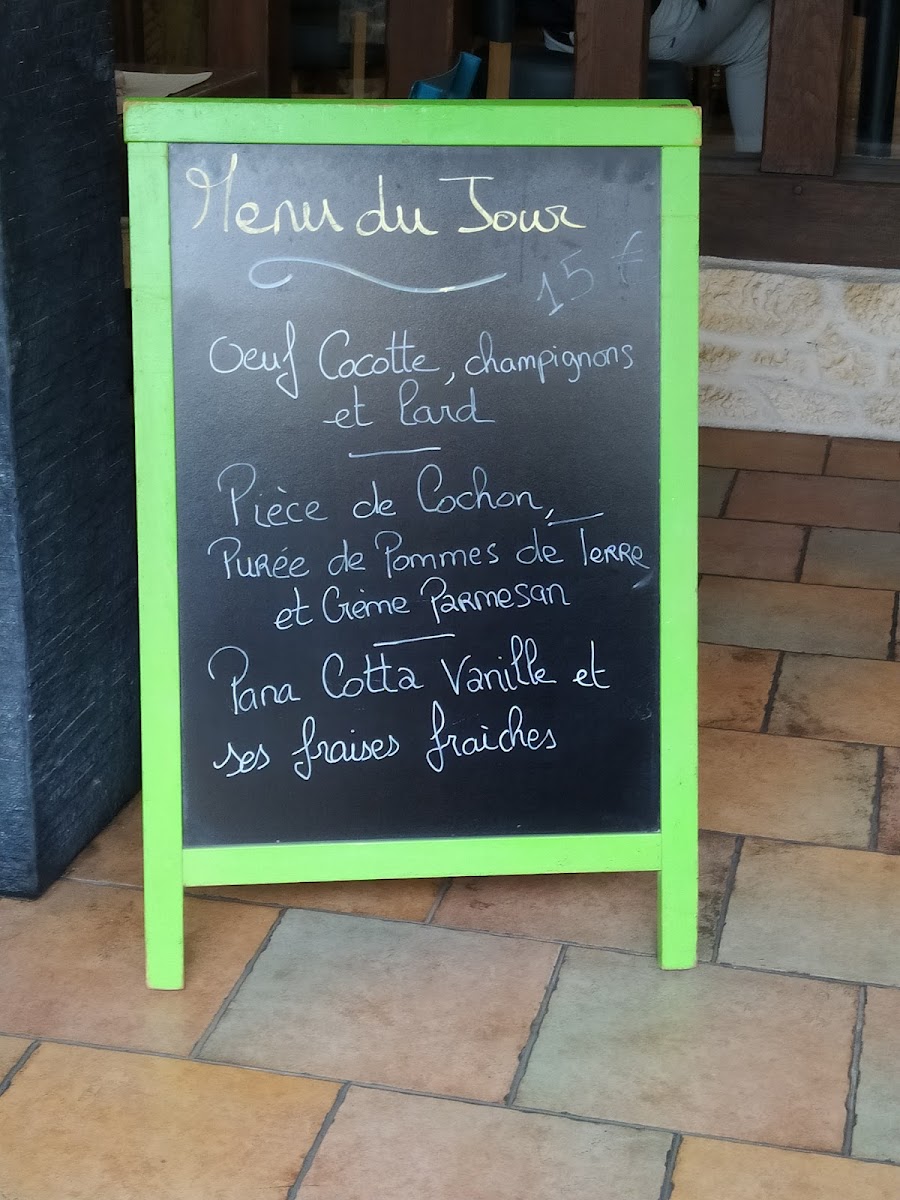 Menu du Jour
15 €
Oeuf Cocotte, champignons
et Lard
Pièce de Cochon,
Purée de Pommes de Terre
et Crème Parmesan
Pana Cotta Vanille et
ses fraises fraîches